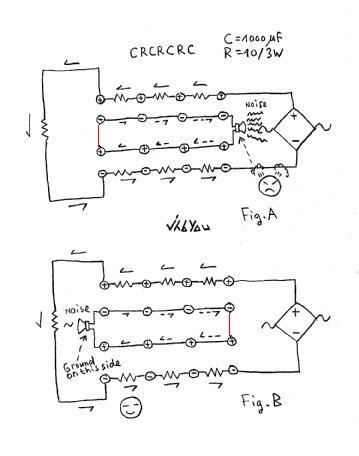 CRCRCRC
C=1000µF
R=10/3W
NOISE
Fig.A
NOISE
Ground
on this side
Fig.B